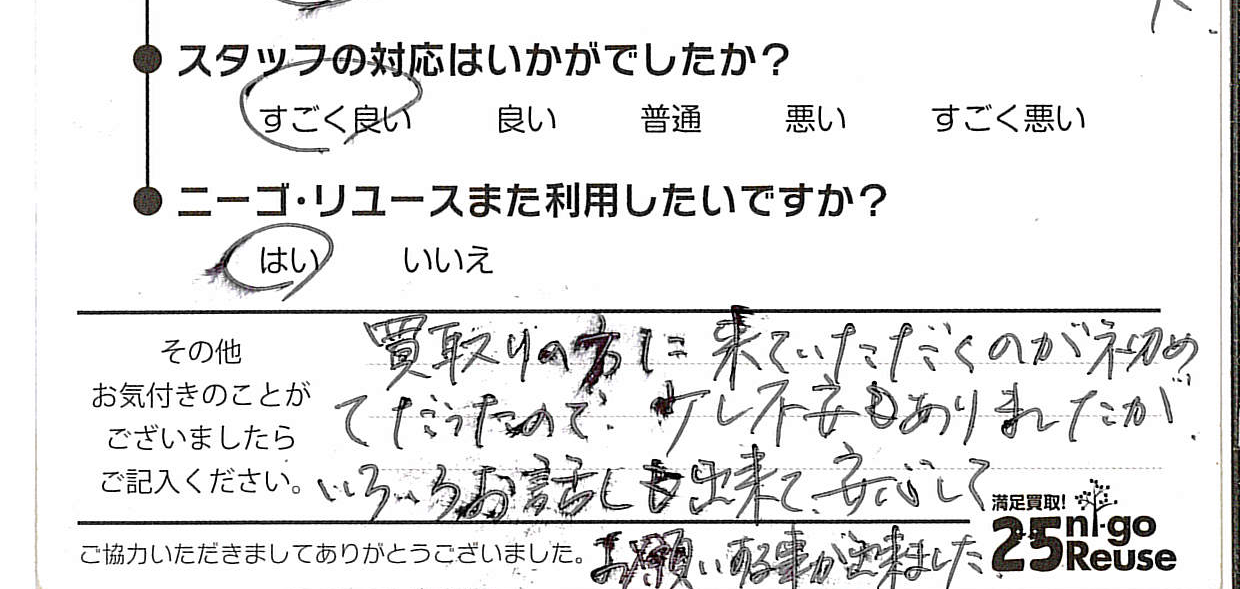 スタッフの対応はいかがでしたか？
すごく良い 良い 普通 悪い すごく悪い
ニーゴ・リユースまた利用したいですか？
はい いいえ
その他
お気付きのことが
ございましたら
ご記入ください。
買取りの方に来ていただくのが初め
てだったので、少し不安もありましたが、
いろいろお話しも出来て、安心して
お願いする事が出来ました。
満足買取!
25 ni-go
Reuse
ご協力いただきましてありがとうございました。